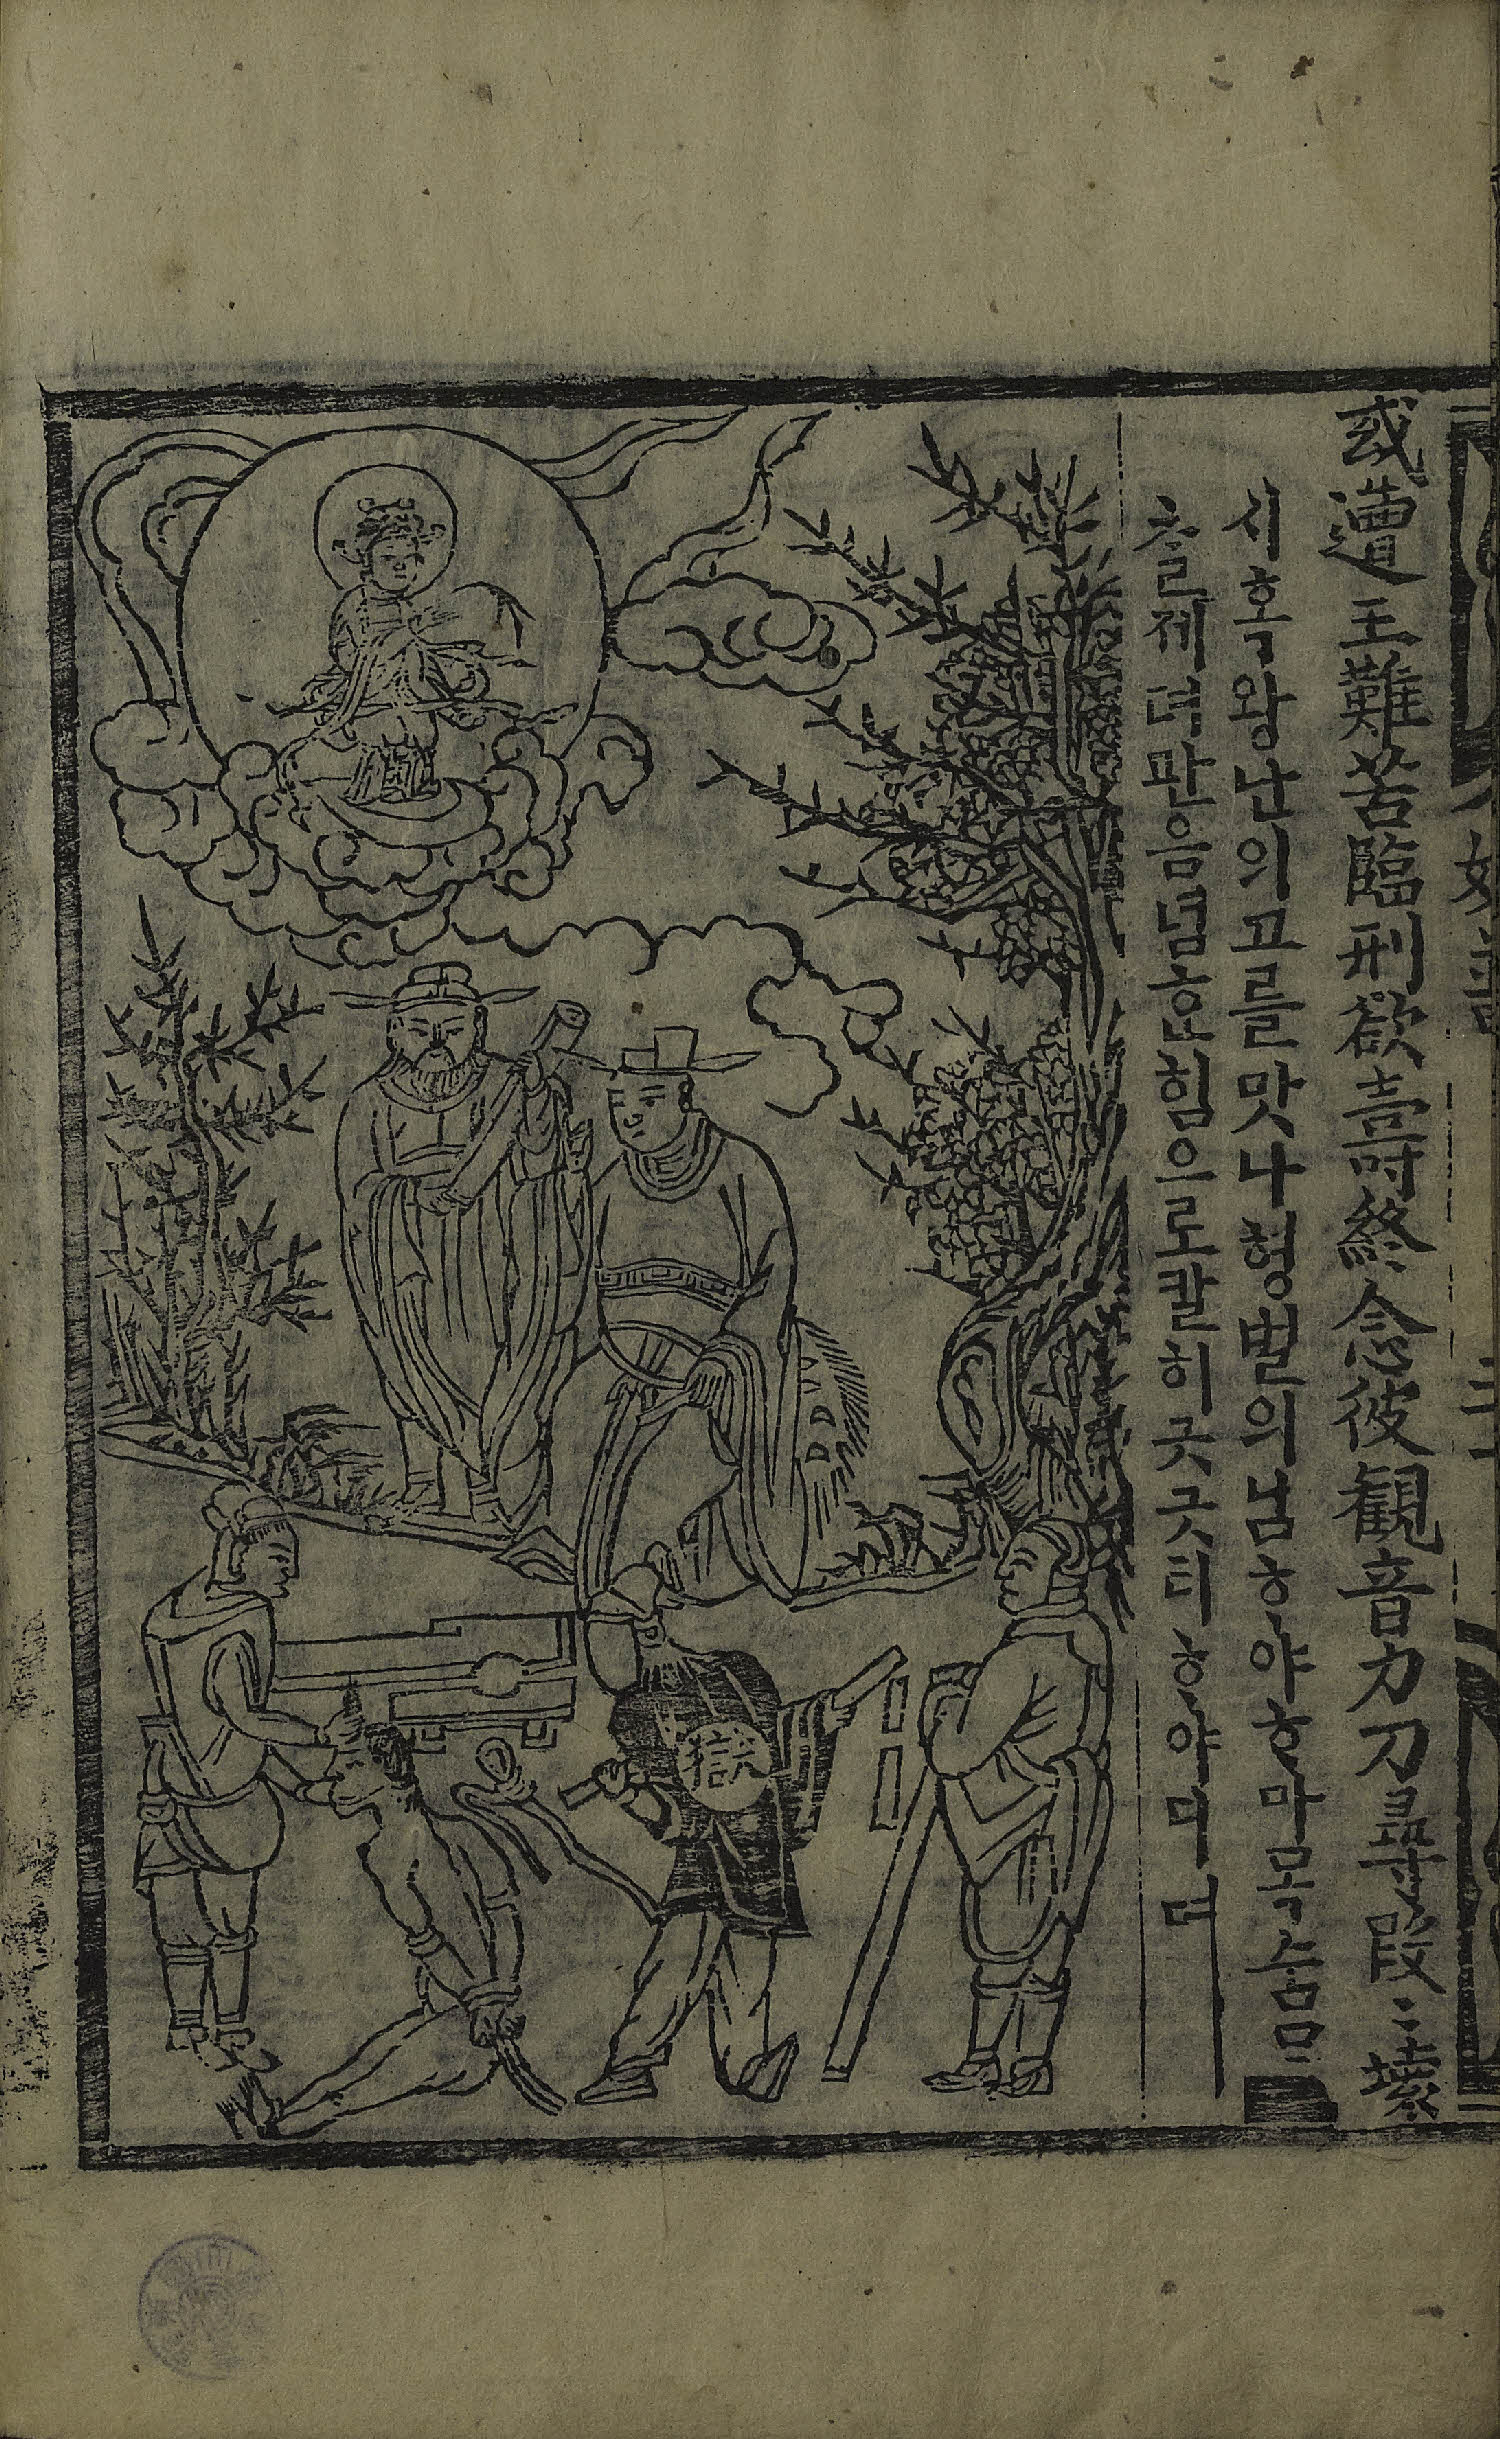 或遭王難苦臨刑欲壽終念彼観音力刀尋段〻壞
시혹왕난의고를맛나형벌의님ᄒᆞ야ᄒᆞ마목숨
ᄎᆞᆯ제 관음념 힘으로칼히귿귿티ᄒᆞ야디
獄